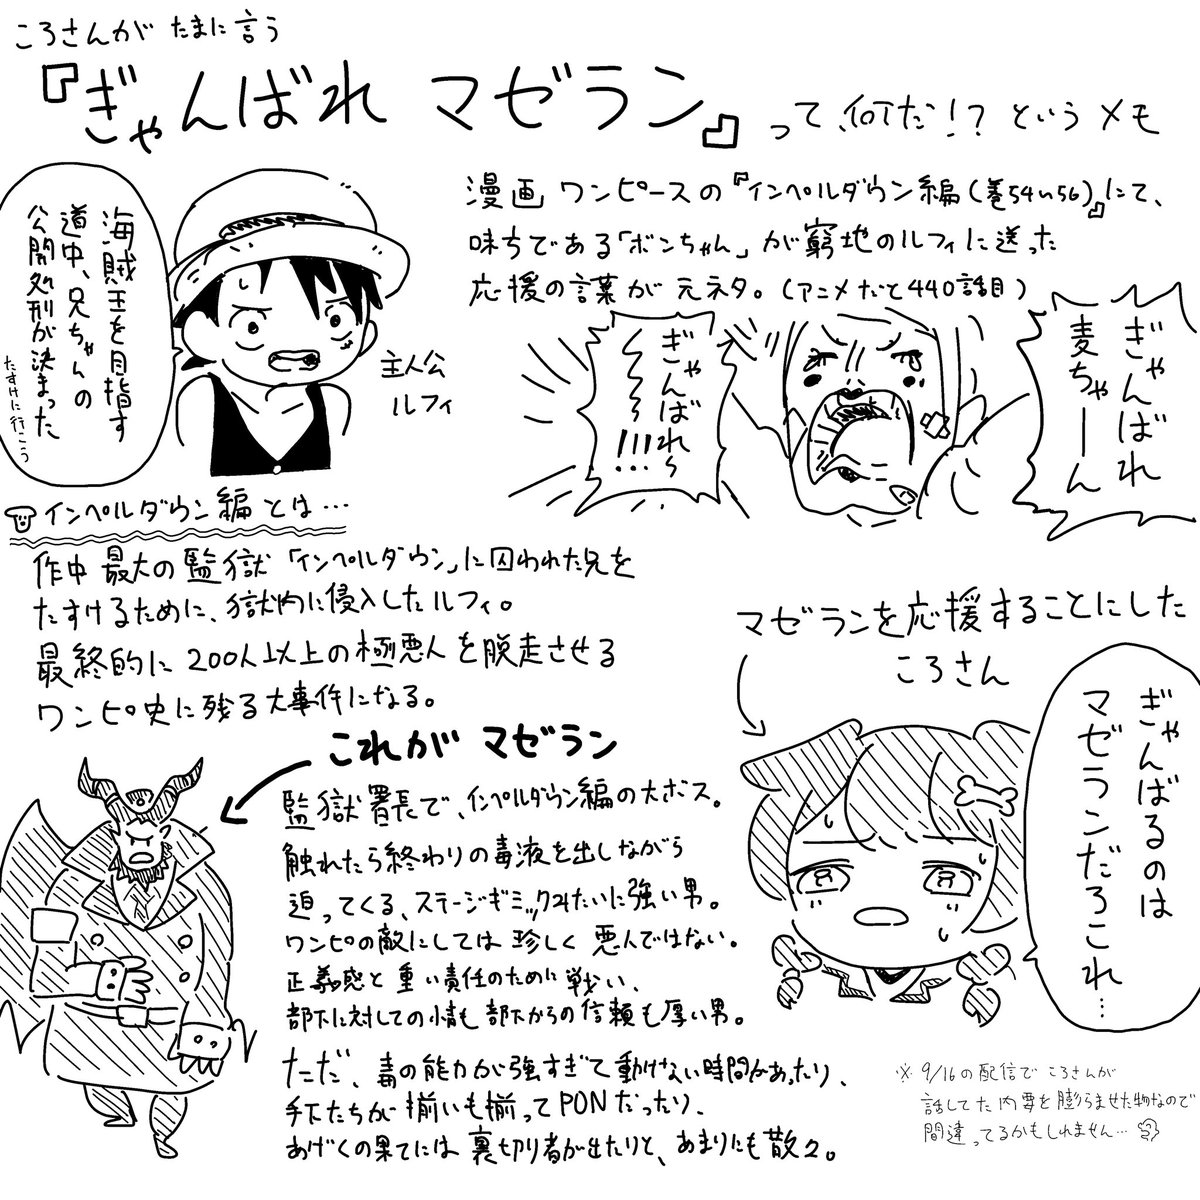 ころさんが たまに言う
『ぎゃんばれ マゼラン』って、何だ!? というメモ
海賊王を目指す
道中、兄ちゃんの
公開処刑が決まった
たすけに行こう
主人公
ルフィ
漫画 ワンピースの『インペルダウン編(巻54〜56)』にて、
味方である「ボンちゃん」が窮地のルフィに送った
応援の言葉が元ネタ。(アニメだと440話目)
ぎゃんばれ〜
〜〜〜!!!
ぎゃんばれ
麦ちゃーん
インペルダウン編とは…
作中最大の監獄「インペルダウン」に囚われた兄を
たすけるために、獄内に侵入したルフィ。
最終的に200人以上の極悪人を脱走させる
ワンピ史に残る大事件になる。
マゼランを応援することにした
ころさん
ぎゃんばるのは
マゼランだろこれ…
これが マゼラン
監獄署長で、インペルダウン編の大ボス。
触れたら終わりの毒液を出しながら
迫ってくる、ステージギミックみたいに強い男。
ワンピの敵にしては珍しく悪人ではない。
正義感と重い責任のために戦い、
部下に対しての情も部下からの信頼も厚い男。
ただ、毒の能力が強すぎて動けない時間があったり、
手下たちが揃いも揃ってPONだったり、
あげくの果てには裏切り者が出たりと、あまりにも散々。
※9/16の配信でころさんが
話してた内容を膨らませた物なので
間違ってるかもしれません…